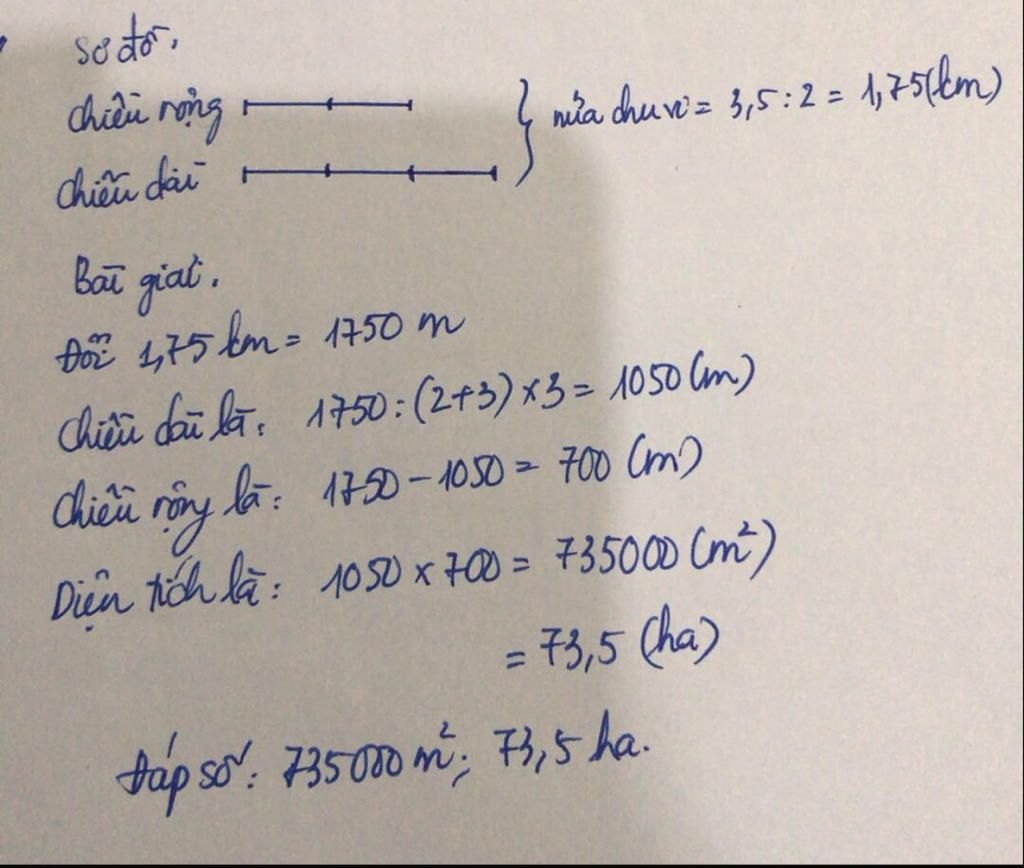 Sơ đồ.
Chiều rộng
nửa chu vi = 3,5 : 2 = 1,75 (km)
Chiều dài
Bài giải.
Đổi: 1,75 km = 1750 m
Chiều dài là: 1750 : (2+3) × 3 = 1050 (m)
Chiều rộng là: 1750 - 1050 = 700 (m)
Diện tích là: 1050 × 700 = 735000 (m²)
= 73,5 (ha)
Đáp số: 735000 m²; 73,5 ha.